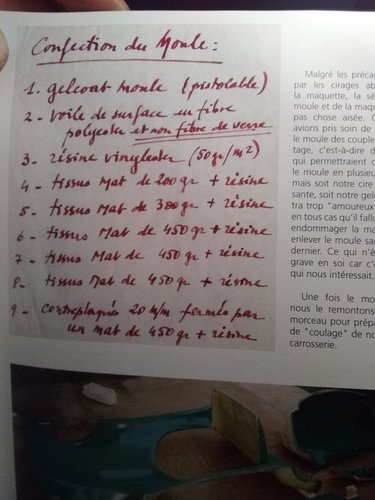 Confection du Moule :
1. gelcoat moule (pistolable)
2 - voile de surface en fibre
polyester et non fibre de verre
3 - résine vinylester (50gr/m2)
4 - tissus Mat de 200 gr + résine
5 - tissus Mat de 300 gr + résine
6 - tissus Mat de 450 gr + résine
7 - tissus Mat de 450 gr + résine
8 - tissus Mat de 450 gr + résine
9 - contreplaqués 20 m/m fermés par
un mat de 450 gr + résine
Malgré les préca
par les cirages ab
la maquette, la sé
moule et de la maque
pas chose aisée. C
avions pris soin de
le moule des couple
tage, c'est-à-dire d
qui permettraient d
le moule en plusieu
mais soit notre cire
sante, soit notre gelc
tra trop "amoureux
en tous cas qu'il fallu
endommager la ma
enlever le moule sa
dernier. Ce qui n'é
grave en soi car c'é
qui nous intéressait.
Une fois le mo
nous le remontons
morceau pour prépa
de "coulage" de no
carrosserie.